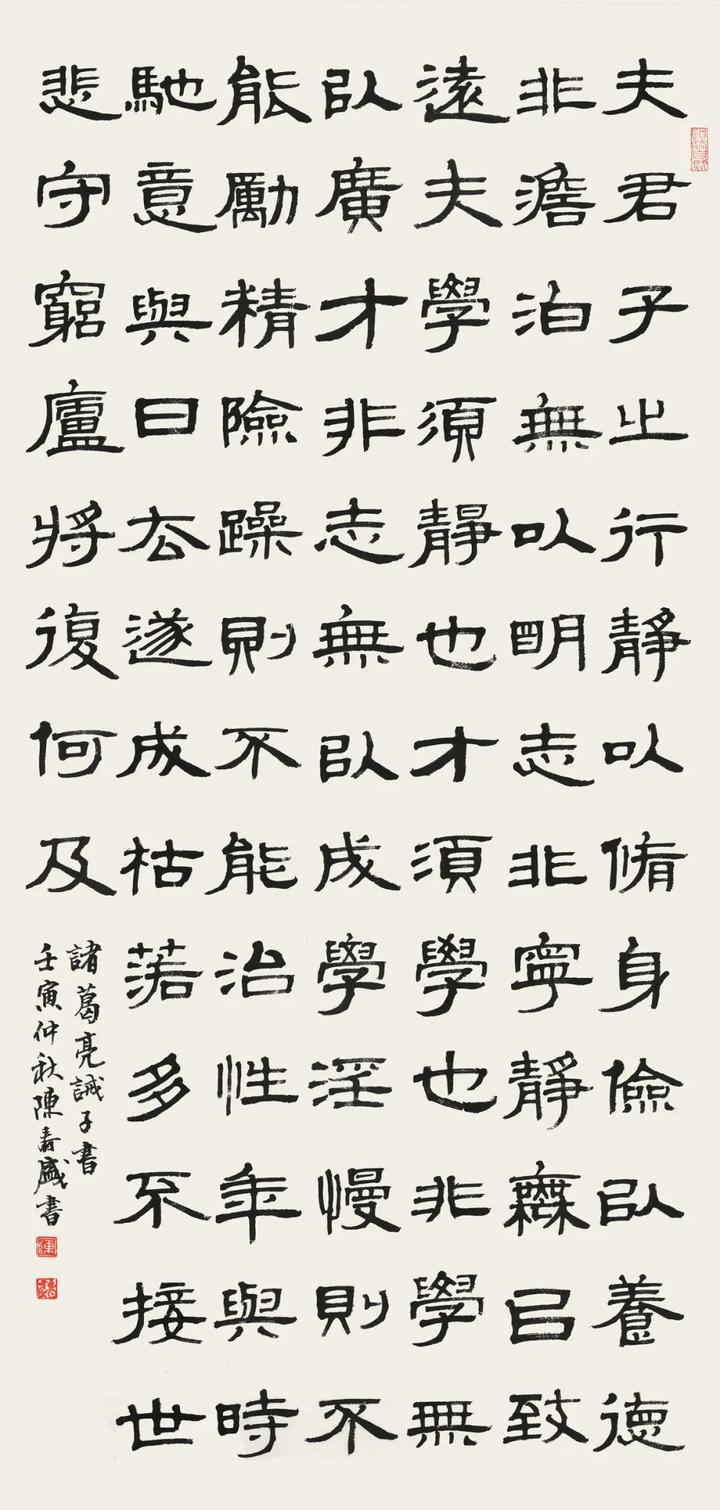 夫君子之行靜以脩身儉以養德
非澹泊無以明志非寧靜無以致
遠夫學須靜也才須學也非學無
以廣才非志無以成學淫慢則不
能勵精險躁則不能治性年與時
馳意與日去遂成枯落多不接世
悲守窮廬將復何及
諸葛亮誡子書
壬寅仲秋陳壽盛書